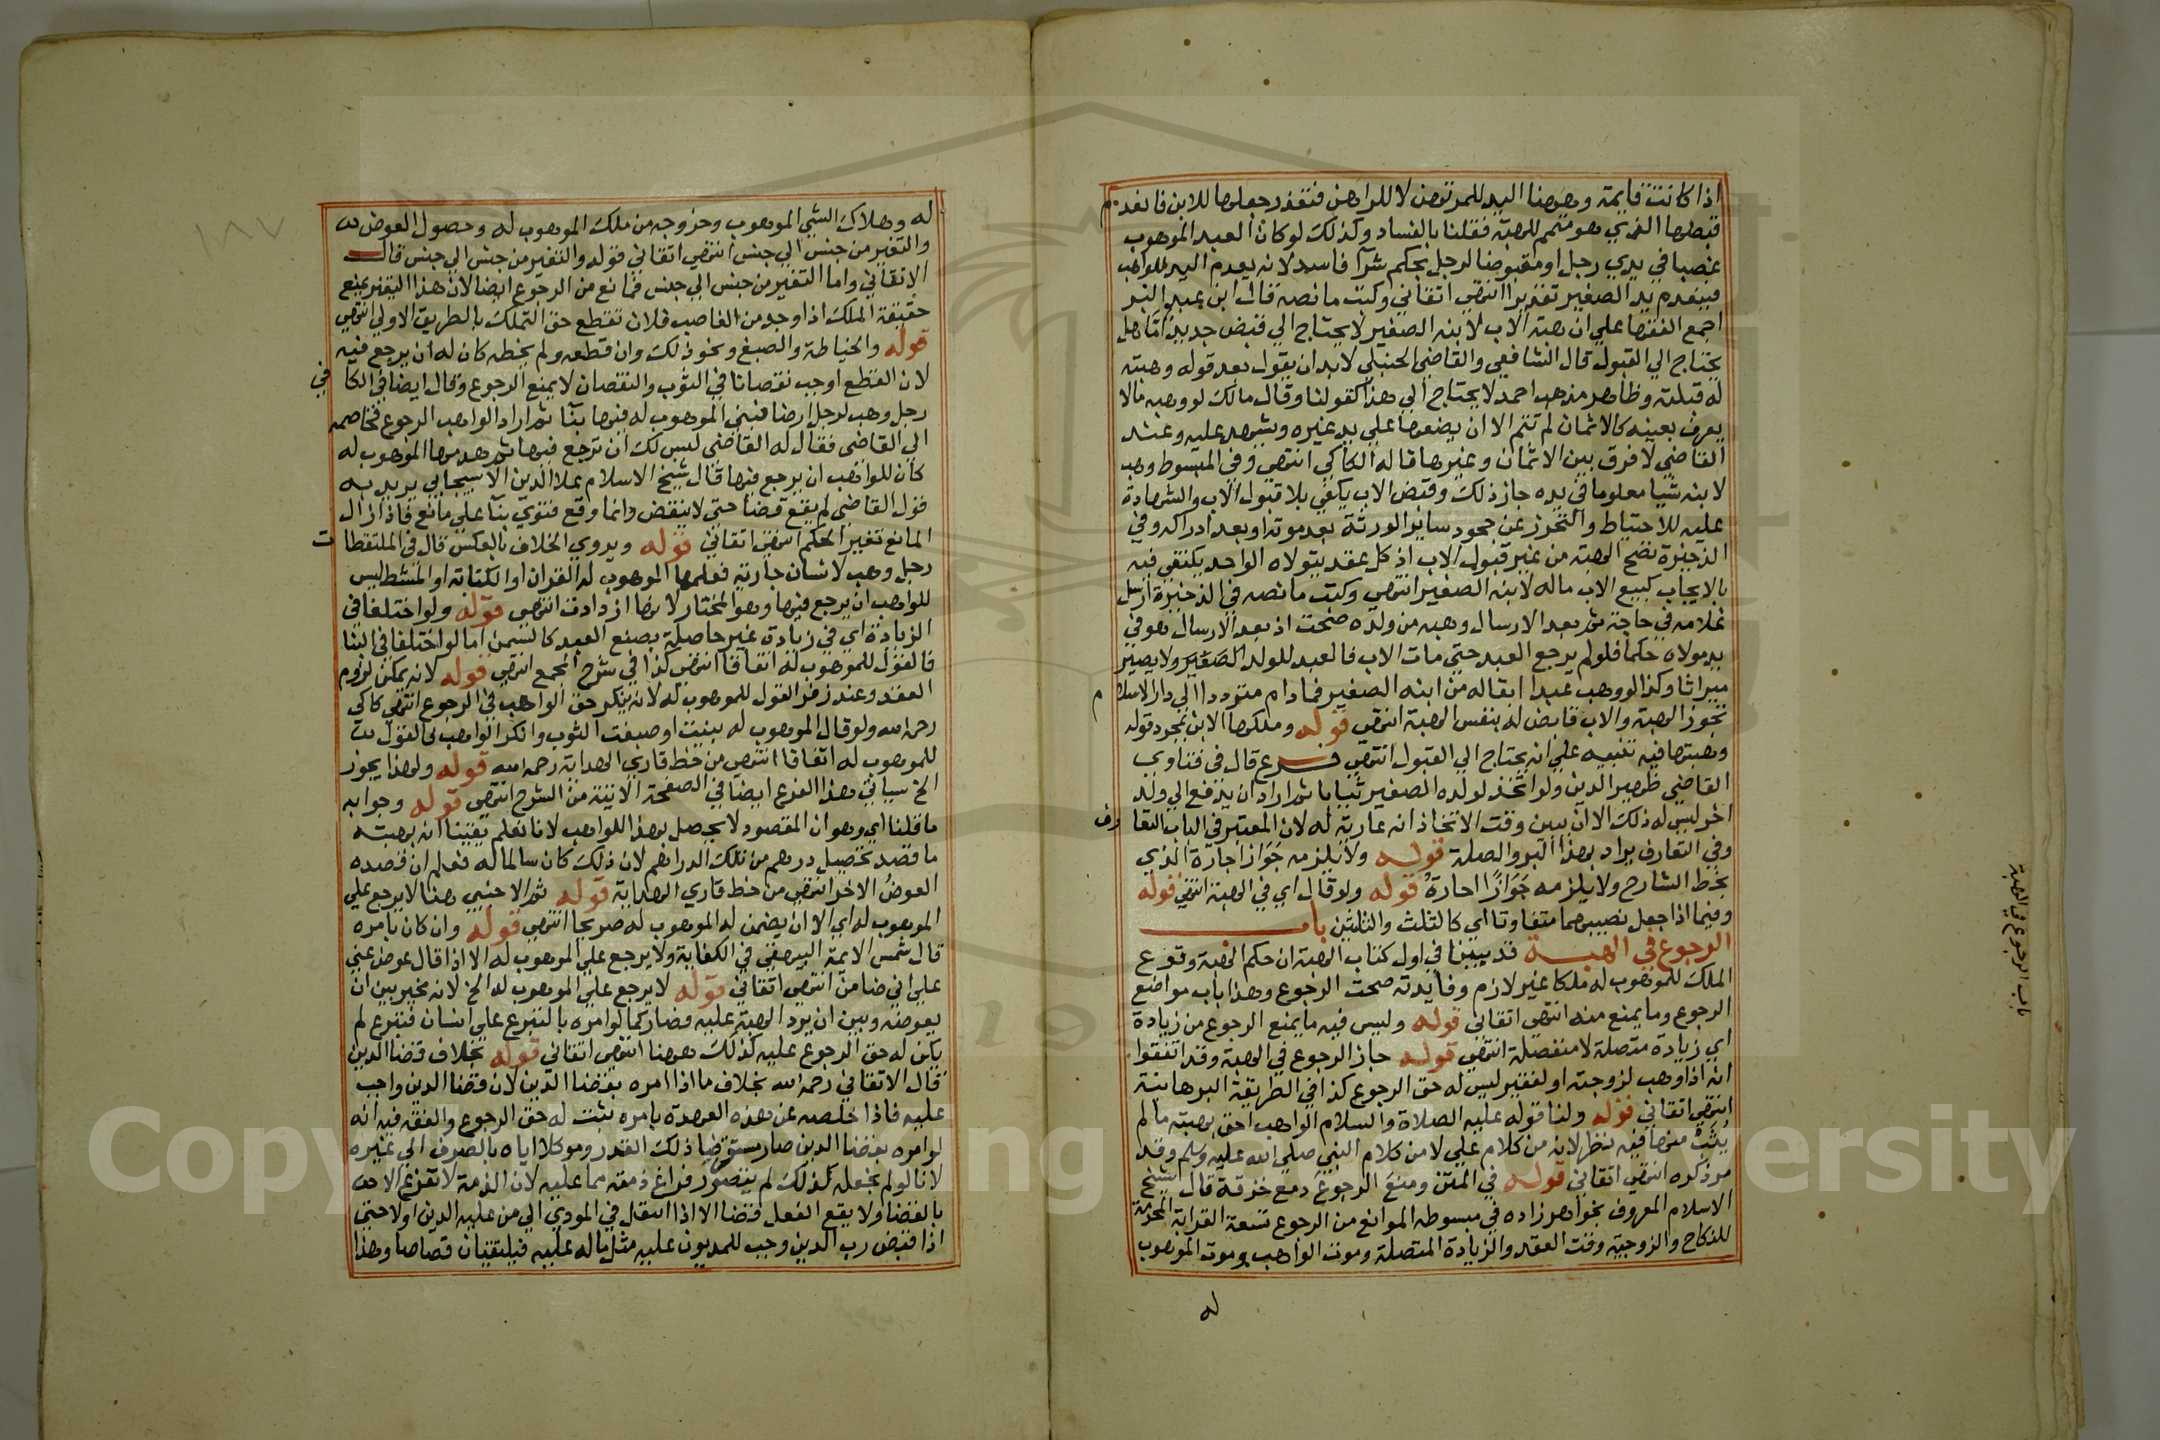 اذا كانت قايمة وههنا اليد للمرتهن لا للراهن فتعذر جعلها للابن فانعدم
قبضها الذي هو متمم للهبة فقلنا بالفساد وكذلك لو كان العبد الموهوب
غصبا في يدي رجل او مقبوضا لرجل بحكم شرآ فاسد لانه يعدم اليد للواهب
فينعدم يد الصغير تقديرا انتهى اتقاني وكتب ما نصه قال ابن عبد البر
اجمع الفقها علي ان هبة الاب لابنه الصغير لا يحتاج الي قبض جديد امّا هل
يحتاج الي القبول قال الشافعي والقاضي الحنبلي لا بد ان يقول بعد قوله وهبته
له قبلته وظاهر مذهب احمد لا يحتاج الي هذا كقولنا وقال مالك لو وهبه مالا
يعرف بعينه كالاثمان لم تتم الا ان يضعها علي يد غيره ويشهد عليه وعند
القاضي لا فرق بين الاثمان وغيرها قاله الكاكي انتهى وفي المبسوط وهب
لابنه شيا معلوما في يده جاز ذلك وقبض الاب يكفي بلا قبول الاب والشهادة
عليه للاحتياط والتحرز عن جحود ساير الورثة بعد موته او بعد ادراكه وفي
الذخيرة تصح الهبة من غير قبول الاب اذ كل عقد يتولاه الواحد يكتفي فيه
بالايجاب كبيع الاب ماله لابنه الصغير انتهى وكتب ما نصه في الذخيرة ارسل
غلامه في حاجة ثم بعد الارسال وهبه من ولده صحت اذ بعد الارسال هو في
يد مولاه حكما فلو لم يرجع العبد حتي مات الاب فالعبد للولد الصغير ولا يصير
ميراثا وكذا لو وهب عبدا ابقا له من ابنه الصغير فما دام مترددا الي دار الاسلام
تجوز الهبة والاب قابض له بنفس الهبة انتهى قوله وملكها الابن بمجرد قوله
وهبتها فيه تنبيه علي انه يحتاج الي القبول انتهى فرع قال في فتاوي
القاضي ظهير الدين ولو اتخذ لولده الصغير ثيابا ثم اراد ان يدفع الي ولد
اخر ليس له ذلك الا ان يبين وقت الاتخاذ انه عارية له لان المعتبر في الباب التعارف
وفي التعارف يراد بهذا البر والصلة قوله ولا يلزمه جواز اجارة الذي
بخط الشارح ولا يلزمه جوازا اجارة قوله ولو قال اي في الهبة انتهى قوله
وفيما اذا جعل نصيبهما متفاوتا اي كالثلث والثلثين باب
الرجوع في الهبة قد بيننا في اول كتاب الهبة ان حكم الهبة وقوع
الملك للموهوب له ملكا غير لازم وفايدته صحت الرجوع وهذا باب مواضع
الرجوع وما يمنع منه انتهى اتقاني قوله وليس فيه ما يمنع الرجوع من زيادة
اي زيادة متصلة لا منفصلة انتهى قوله جاز الرجوع في الهبة وقد اتفقوا
انه اذا وهب لزوجته او لفقير ليس له حق الرجوع كذا في الطريقة البرهانية
انتهى اتقاني قوله ولنا قوله عليه الصلاة والسلام الواهب احق بهبته ما لم
يُثَبْ منها فيه نظر لانه من كلام علي لا من كلام النبي صلي الله عليه وسلم وقد
مر ذكره انتهى اتقاني قوله في المتن ومنع الرجوع دمع خزقه قال شيخ
الاسلام المعروف بخواهر زاده في مبسوطه الموانع من الرجوع تسعة القرابة المحرمة
للنكاح والزوجية وقت العقد والزيادة المتصلة وموت الواهب وموت الموهوب
له
باب الرجوع في الهبة
١٨٧
له وهلاك الشي الموهوب وخروجه من ملك الموهوب له وحصول العوض له
والتغير من جنس الي جنس انتهى اتقاني قوله والتغير من جنس الي جنس قال
الاتقاني واما التغير من جنس الي جنس فمانع من الرجوع ايضا لان هذا التغير يمنع
حقيقة الملك اذا وجد من الغاصب فلان تقطع حق التملك بالطريق الاولي انتهى
قوله والخياطة والصبغ ونحو ذلك وان قطعه ولم يخطه كان له ان يرجع فيه
لان القطع اوجب نقصانا في الثوب والنقصان لا يمنع الرجوع وقال ايضا في الكافي
رجل وهب لرجل ارضا فبني الموهوب له فيها بنآ ثم اراد الواهب الرجوع فخاصمه
الي القاضي فقال له القاضي ليس لك ان ترجع فيها ثم هدمها الموهوب له
كان للواهب ان يرجع فيها قال شيخ الاسلام علا الدين الاسبيجابي يريد به
قول القاضي لم يقع قضا حتي لا ينتقض وانما وقع فتوي بنآ علي مانع فاذا زال
المانع تغير الحكم انتهى اتقاني قوله ويروي الخلاف بالعكس قال في الملتقطات
رجل وهب لانسان جارية فعلمها الموهوب له القران او الكتابة او المشط ليس
للواهب ان يرجع فيها وهو المختار لانها ازدادت انتهى قوله ولو اختلفا في
الزيادة اي في زيادة غير حاصلة بصنع العبد كالسمن اما لو اختلفا في البنا
فالقول للموهوب له اتفاقا انتهى كذا في شرح المجمع انتهى قوله لانه يمكن لزوم
العقد وعند زفر القول للموهوب له لانه ينكر حق الواهب في الرجوع انتهى كاكي
رحمه الله ولو قال الموهوب له بنيت او صبغت الثوب وانكر الواهب فالقول
للموهوب له اتفاقا انتهى من خط قاري الهداية رحمه الله قوله ولهذا يجوز
الخ سياتي هذا الفرع ايضا في الصفحة الاتية من الشرح انتهى قوله وجوابه
ما قلنا اي وهو ان المقصود لا يحصل بهذا للواهب لانا نعلم يقينا انه بهبته
ما قصد تحصيل درهم من تلك الدراهم لان ذلك كان سالما له فعلم ان قصده
العوض الاخر انتهى من خط قاري الهداية قوله ثم الاجنبي هنا لا يرجع علي
الموهوب له اي الا ان يضمن له الموهوب له صريحا انتهى قوله وان كان بامره
قال شمس الايمة البيهقي في الكفاية ولا يرجع علي الموهوب له الا اذا قال عوض عني
علي اني ضامن انتهى اتقاني قوله لا يرجع علي الموهوب له الخ لانه مخير بين ان
يعوضه وبين ان يرد الهبة عليه فصار كما لو امره بالتبرع علي انسان فتبرع لم
يكن له حق الرجوع عليه كذلك ههنا انتهى اتقاني قوله بخلاف قضا الدين
قال الاتقاني رحمه الله بخلاف ما اذا امره بقضا الدين لان قضا الدين واجب
عليه فاذا خلصه عن هذه العهدة بامره يثبت له حق الرجوع والفقه فيه انه
لو امره بقضا الدين صار مستقرضا ذلك القدر وموكلا اياه بالصرف الي غيره
لانا لو لم نجعل كذلك لم يتصور فراغ ذمته مما عليه لان الذمة لا تفرغ الا
بالقضا ولا يقع الفعل قضا الا اذا انتقل في المودي الي من عليه الدين اولا حتي
اذا قبض رب الدين وجب للمديون عليه مثل ماله عليه فيلتقيان قصاصا وهذا
Copyright © King Saud University